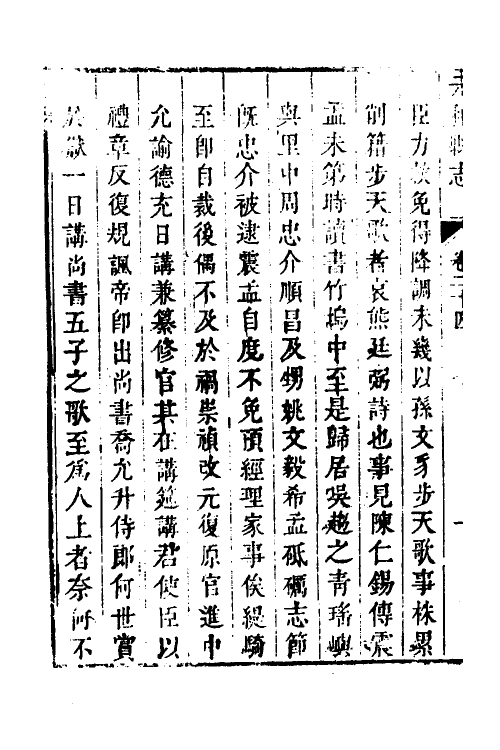 臣力救免得降調未幾以孫文豸步天歌事株累
削籍步天歌者哀熊廷弼詩也事見陳仁錫傳震
孟未第時讀書竹塢中至是歸居吳趨之靑瑤嶼
與里中周忠介順昌及甥姚文毅希孟砥礪志節
旣忠介被逮震孟自度不免預經理家事俟緹騎
至卽自裁後偶不及於禍崇禎改元復原官進中
允諭德充日講兼纂修官其在講筵講君使臣以
禮章反復規諷帝卽出尚書喬允升侍郎何世賞
於獄一日講尚書五子之歌至爲人上者奈何不
志
卷二十四